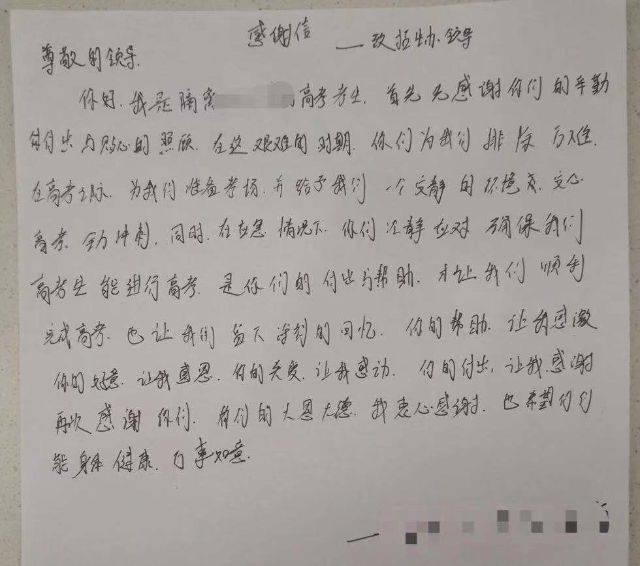 感谢信
——致招生办领导
尊敬的领导
你好,我是隔离 的高考考生,首先先感谢你们的辛勤
付出与贴心的照顾,在这艰难的时期,你们为我们排除万难,
在高考之际,为我们准备考场,并给予我们一个安静的环境 安心
备考,全力冲刺,同时,在应急情况下,你们冷静应对 确保我们
高考生能进行高考,是你们的付出与帮助,才让我们顺利
完成高考,也让我们留下深刻的回忆,你的帮助,让我感激
你的好意,让我感恩,你的关爱,让我感动,你的付出,让我感谢
再次感谢你们,你们的大恩大德,我衷心感谢,也希望你们
能身体健康,万事如意.